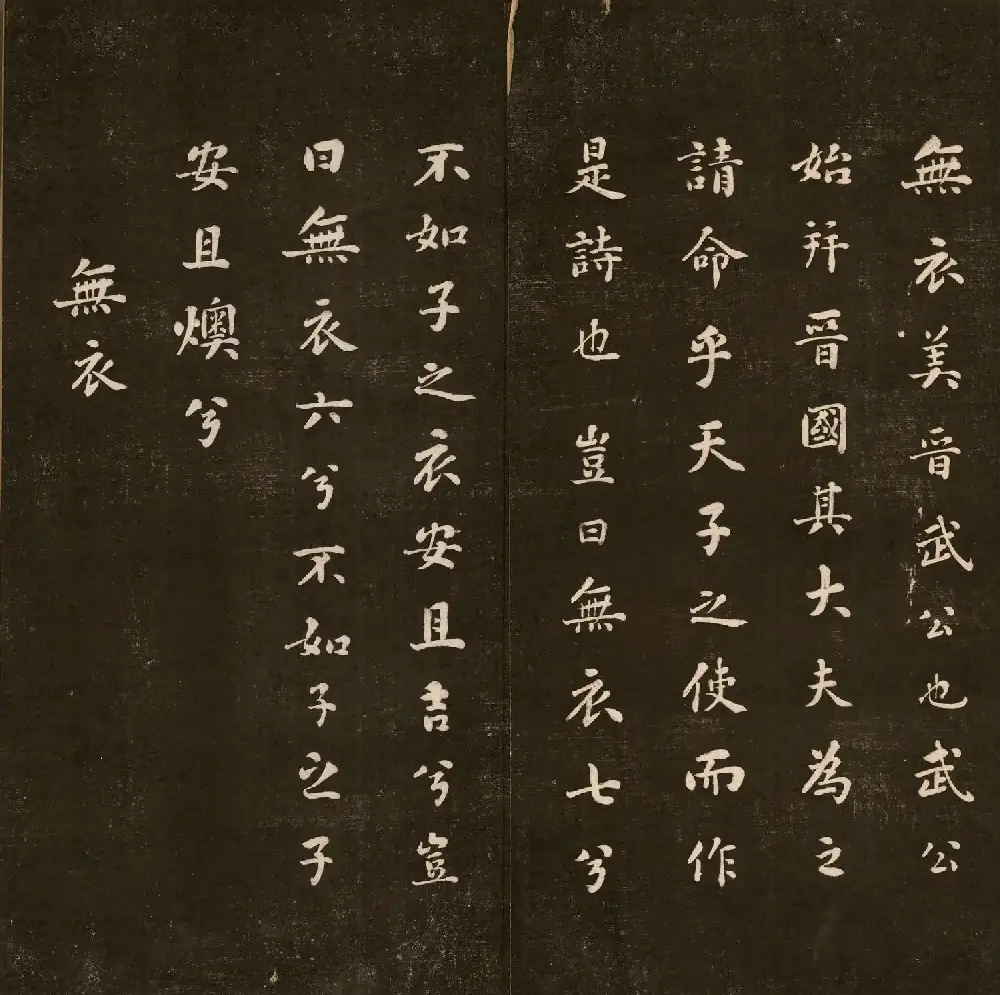 無衣美晉武公也武公
始并晉國其大夫為之
請命乎天子之使而作
是詩也 豈曰無衣七兮
不如子之衣安且吉兮豈
曰無衣六兮不如子之子
安且燠兮
無衣